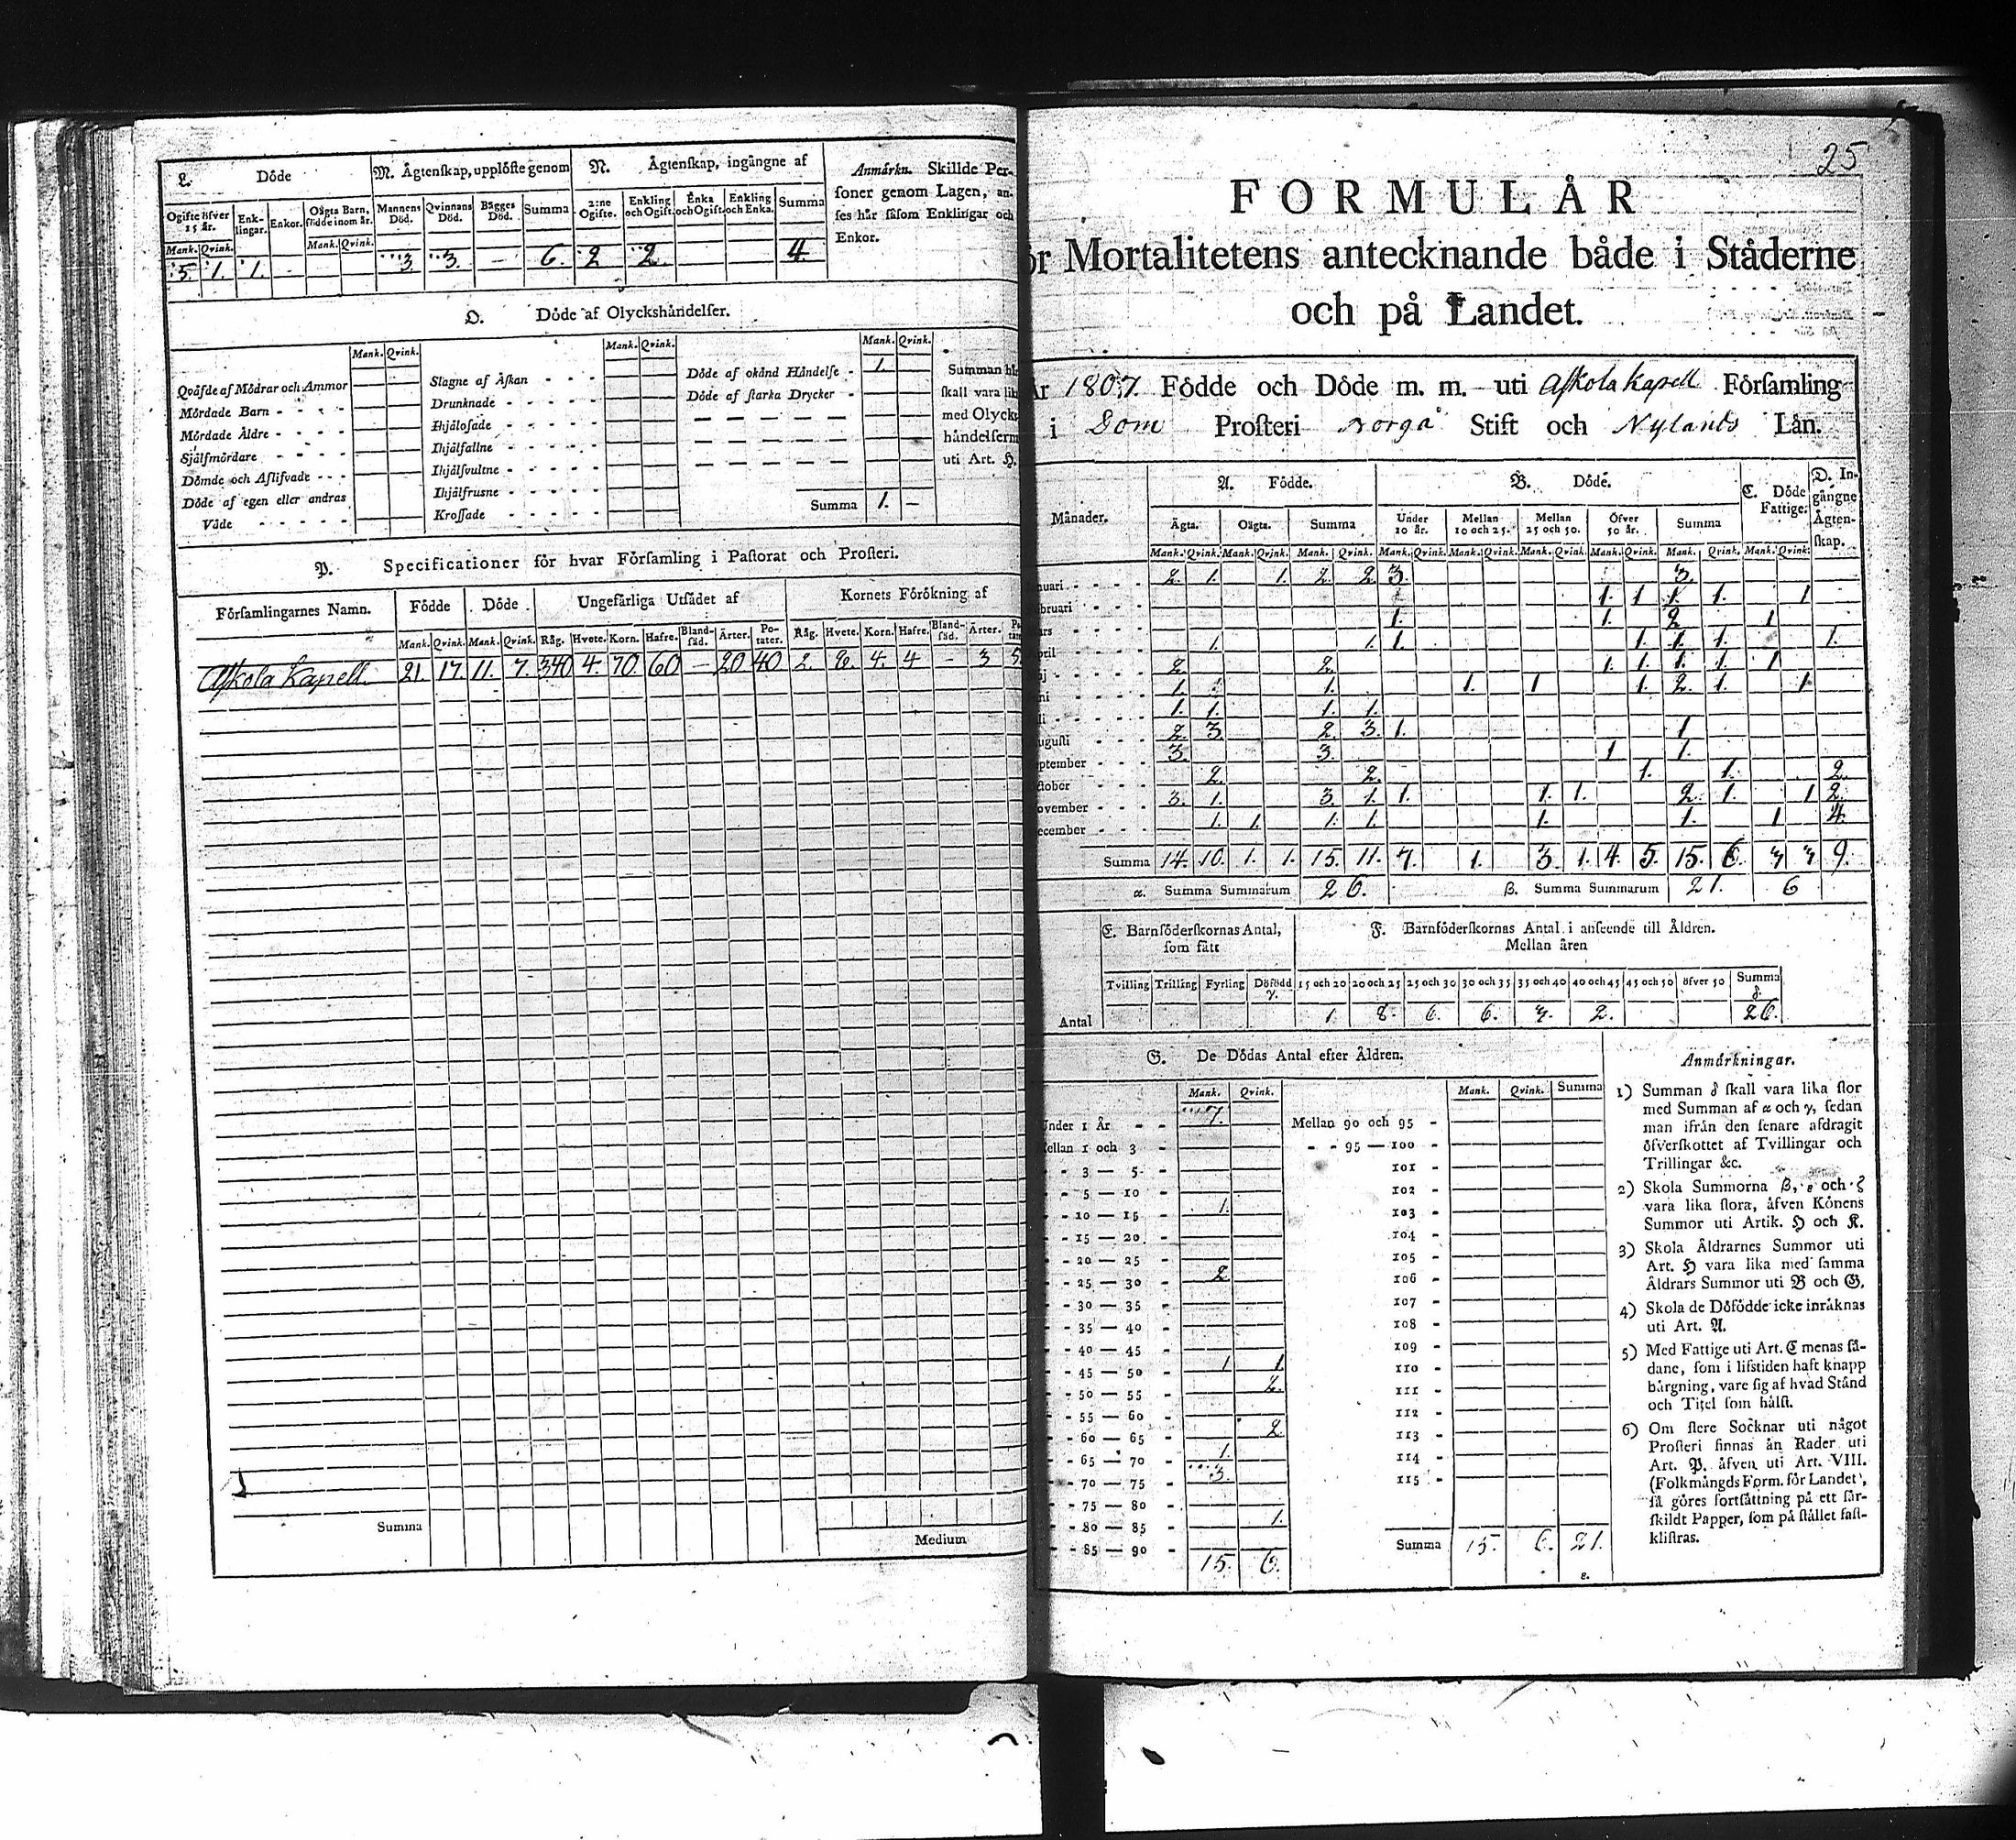 L. Döde
M. Ägtenskap, upplöste genom
N. Ägtenskap, ingångne af
Anmärkn. Skillde Per-
soner genom Lagen, an-
ses här såsom Enklingar och
Enkor.
Ogifte öfver 15 år. Enk-lingar. Enkor. Oägta Barn, födde inom år. Mannens Död. Qvinnans Död. Bägges Död. Summa 2:ne Ogifte. Enkling och Ogift. Enka och Ogift. Enkling och Enka. Summa
Mank. Qvink. Mank. Qvink.
5. 1. 1. - 3. 3. - 6. 2 2. 4
O. Döde af Olyckshändelser.
Mank. Qvink. Mank. Qvink. Mank. Qvink.
Qväfde af Mödrar och Ammor
Mördade Barn - - - -
Mördade Äldre - - - -
Själfmördare - - - -
Dömde och Aflifvade - - -
Döde af egen eller andras
Våde - - - - -
Slagne af Åskan - - -
Drunknade - - - - -
Ihjälosade - - - - -
Ihjälfallne - - - - -
Ihjälsvultne - - - - -
Ihjälfrusne - - - - -
Krossade - - - - -
Döde af okänd Händelse - 1.
Döde af starka Drycker -
Summa 1. -
Summan
skall vara
med Olycks
händelserne
uti Art. H.
P. Specificationer för hvar Församling i Pastorat och Prosteri.
Församlingarnes Namn. Födde Döde Ungefärliga Utsädet af Kornets Förökning af
Mank. Qvink. Mank. Qvink. Råg. Hvete. Korn. Hafre. Bland-säd. Ärter. Po-tater. Råg. Hvete. Korn. Hafre. Bland-säd. Ärter.
Askola Kapell. 21. 17. 11. 7. 340 4. 70. 60 - 20 40 2. 2. 4. 4 - 3 5.
Summa
Medium
25
FORMULÅR
Mortalitetens antecknande både i Ståderne
och på Landet.
År 1807. Födde och Döde m. m. uti Askola Kapell Församling
i Dom Prosteri Borgå Stift och Nylands Län.
Månader. A. Födde. B. Döde. C. Döde Fattige. D. In-gångne Ägten-skap.
Ägta. Oägta. Summa Under 10 år. Mellan 10 och 25. Mellan 25 och 50. Öfver 50 år. Summa
Mank. Qvink. Mank. Qvink. Mank. Qvink. Mank. Qvink. Mank. Qvink. Mank. Qvink. Mank. Qvink. Mank. Qvink. Mank. Qvink.
nuari - - - - 2. 1. 1. 2. 2 3. 3.
bruari - - - 1. 1 1. 1. 1
ars - - - 1. 1. 2 1
pril - - - 1. 1. 1. 1. 1. 1. 1.
aj - - - 2 2. 1. 1. 1. 1. 1
ni - - - 1. 1. 1. 1 1. 2. 1. 1
li - - - 1. 1. 1. 1.
ugusti - - - 2 3 2. 3. 1. 1
ptember - - - 3. 3. 1 1.
ktober - - - 2. 2. 1. 1. 2.
ovember - - - 3. 1. 3. 1. 1. 1. 1. 2. 1. 1 2.
ecember - - - 1. 1. 1. 1. 1. 1. 1 4
Summa 14. 10. 1. 1. 15. 11. 7. 1. 3. 1. 4. 5. 15. 6. 3 3 9.
α. Summa Summarum 26. β. Summa Summarum 21. 6
E. Barnföderskornas Antal,
som fått
F. Barnföderskornas Antal i anseende till Åldren.
Mellan åren
Tvilling Trilling Fyrling Döfödd γ. 15 och 20 20 och 25 25 och 30 30 och 35 35 och 40 40 och 45 45 och 50 öfver 50 Summa δ.
Antal 1. 8. 6. 6. 3. 2. 26.
G. De Dödas Antal efter Åldren.
Mank. Qvink. Mank. Qvink. Summa
Under 1 År - - 7.
Mellan 1 och 3 -
- - 3 — 5 -
- - 5 — 10 -
- - 10 — 15 - 1.
- - 15 — 20 -
- - 20 — 25 -
- - 25 — 30 - 2
- - 30 — 35 -
- - 35 — 40 -
- - 40 — 45 -
- - 45 — 50 - 1 1.
- - 50 — 55 - 2.
- - 55 — 60 -
- - 60 — 65 - 2
- - 65 — 70 - 1.
- - 70 — 75 - 3.
- - 75 — 80 -
- - 80 — 85 - 1.
- - 85 — 90 -
15. 6.
Mellan 90 och 95 -
- - 95 — 100 -
101 -
102 -
103 -
104 -
105 -
106 -
107 -
108 -
109 -
110 -
111 -
112 -
113 -
114 -
115 -
Summa 15. 6. 21.
ε.
Anmärkningar.
1) Summan δ skall vara lika stor
med Summan af α och γ, sedan
man ifrån den senare afdragit
öfverskottet af Tvillingar och
Trillingar &c.
2) Skola Summorna β, ε och ζ
vara lika stora, äfven Könens
Summor uti Artik. H och K.
3) Skola Åldrarnes Summor uti
Art. H vara lika med samma
Åldrars Summor uti B och G.
4) Skola de Döfödde icke inräknas
uti Art. A.
5) Med Fattige uti Art. C menas så-
dane, som i lifstiden haft knapp
bärgning, vare sig af hvad Stånd
och Titel som hälst.
6) Om flere Socknar uti något
Prosteri finnas än Rader uti
Art. P. äfven uti Art. VIII.
(Folkmängds Form. för Landet),
så göres fortsättning på ett sär-
skildt Papper, som på stället fast-
klistras.